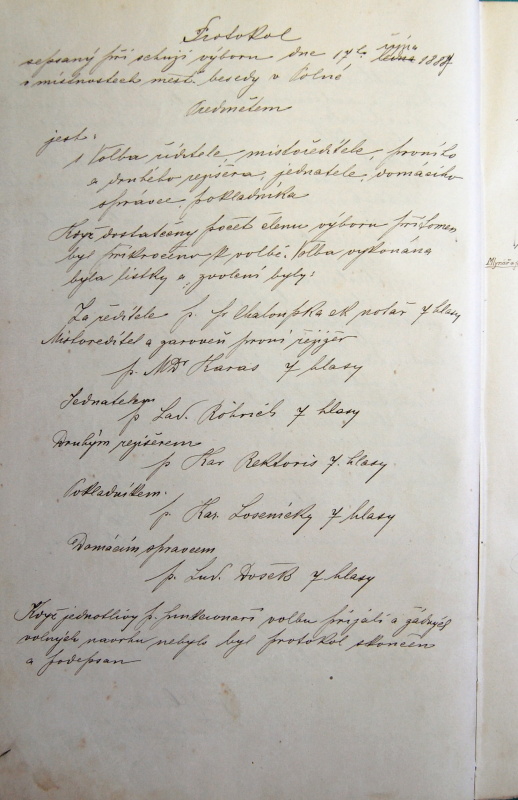 Protokol
sepsaný při schůzi výboru dne 17ho října ledna 1884
v místnostech měšť. besedy v Polné
Předmětem
jest:
1 Volba ředitele, místoředitele, prvního
a druhého regiséra, jednatele, domácího
správce, pokladníka
Když dostatečný počet členu výboru přítomen,
byl přikročeno k volbě. Volba vykonána
byla lístky a zvoleni byly:
Za ředitele p. Chaloupka ck notář 7 hlasy
Místoředitel a zároveň první režisér
p. MDr Karas 7 hlasy
Jednatelem
p Lad. Röhrich 7 hlasy
Druhým regisérem
p Kar Rektoris 7. hlasy
Pokladníkem.
p. Kar. Losenický 7 hlasy
Domácím správcem
p. Lud. Došek 7 hlasy
Když jednotlivý p. funkcionaři volbu přijali a žádných
volných návrhu nebylo byl protokol skončen
a podepsán